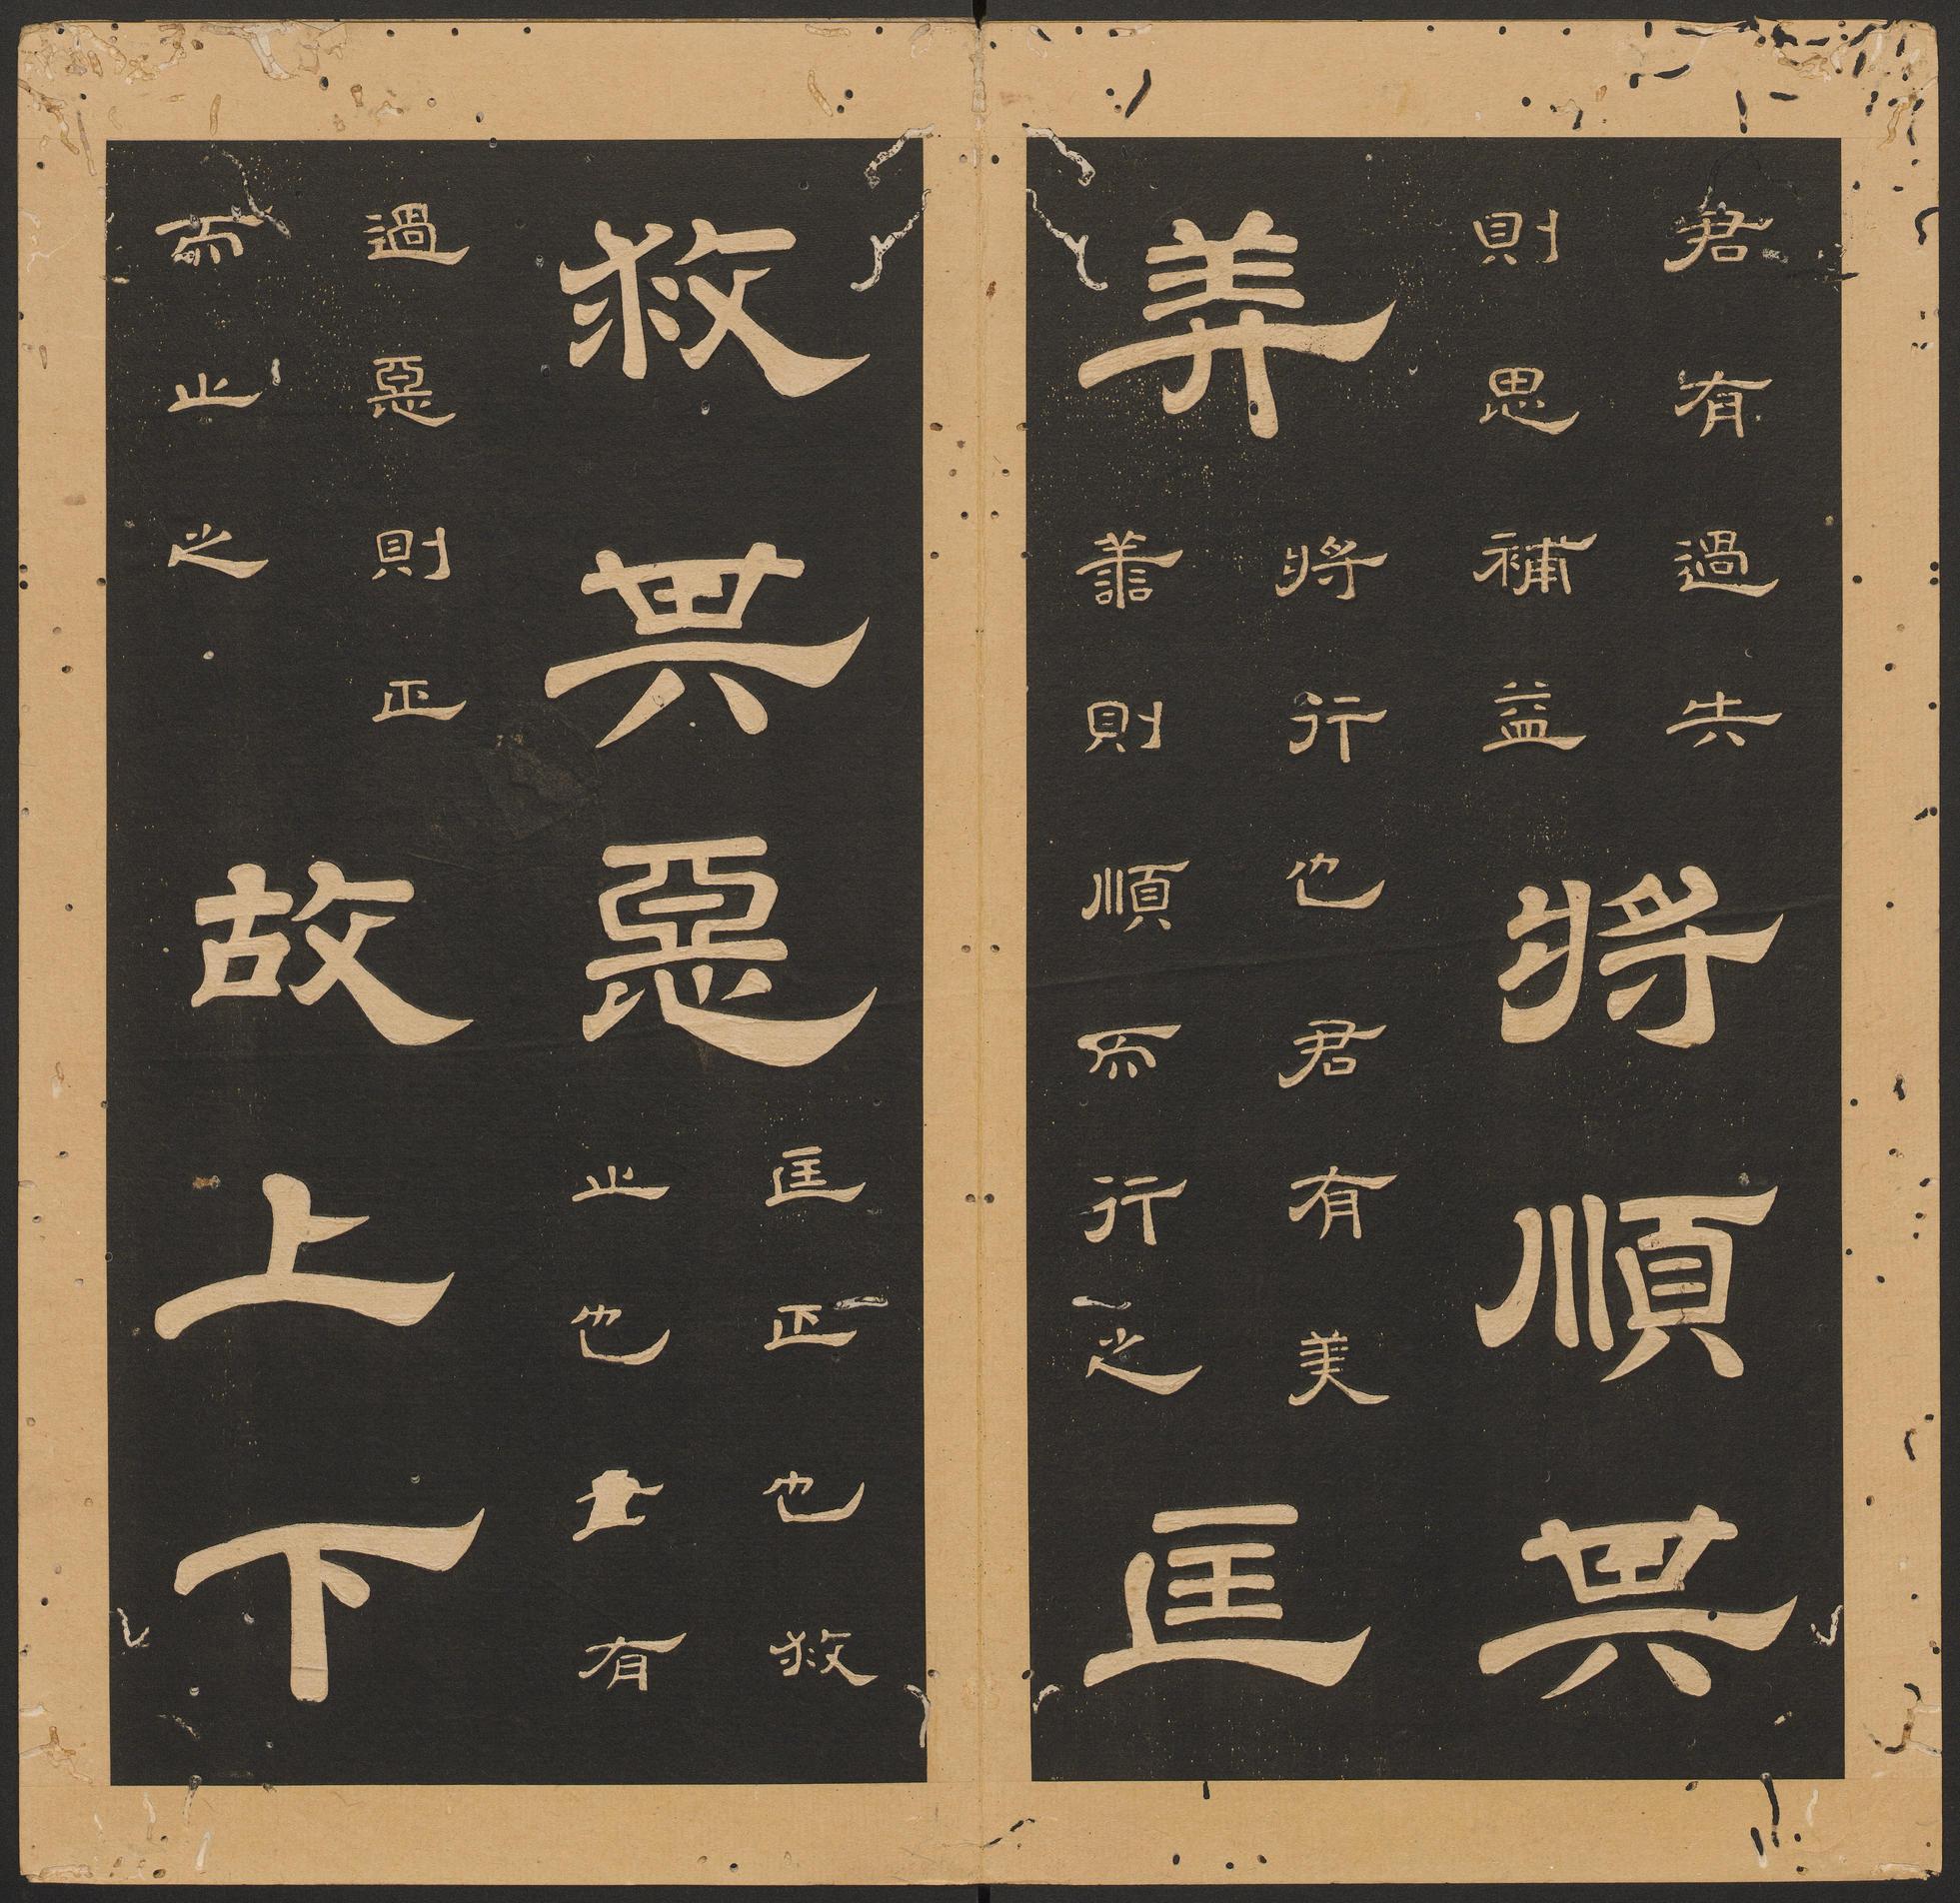 君有過失
則思補益
將順其
美
將行也君有美
善則順而行之
匡
救其惡
匡正也救
止也有
過惡則正
而止之
故上下